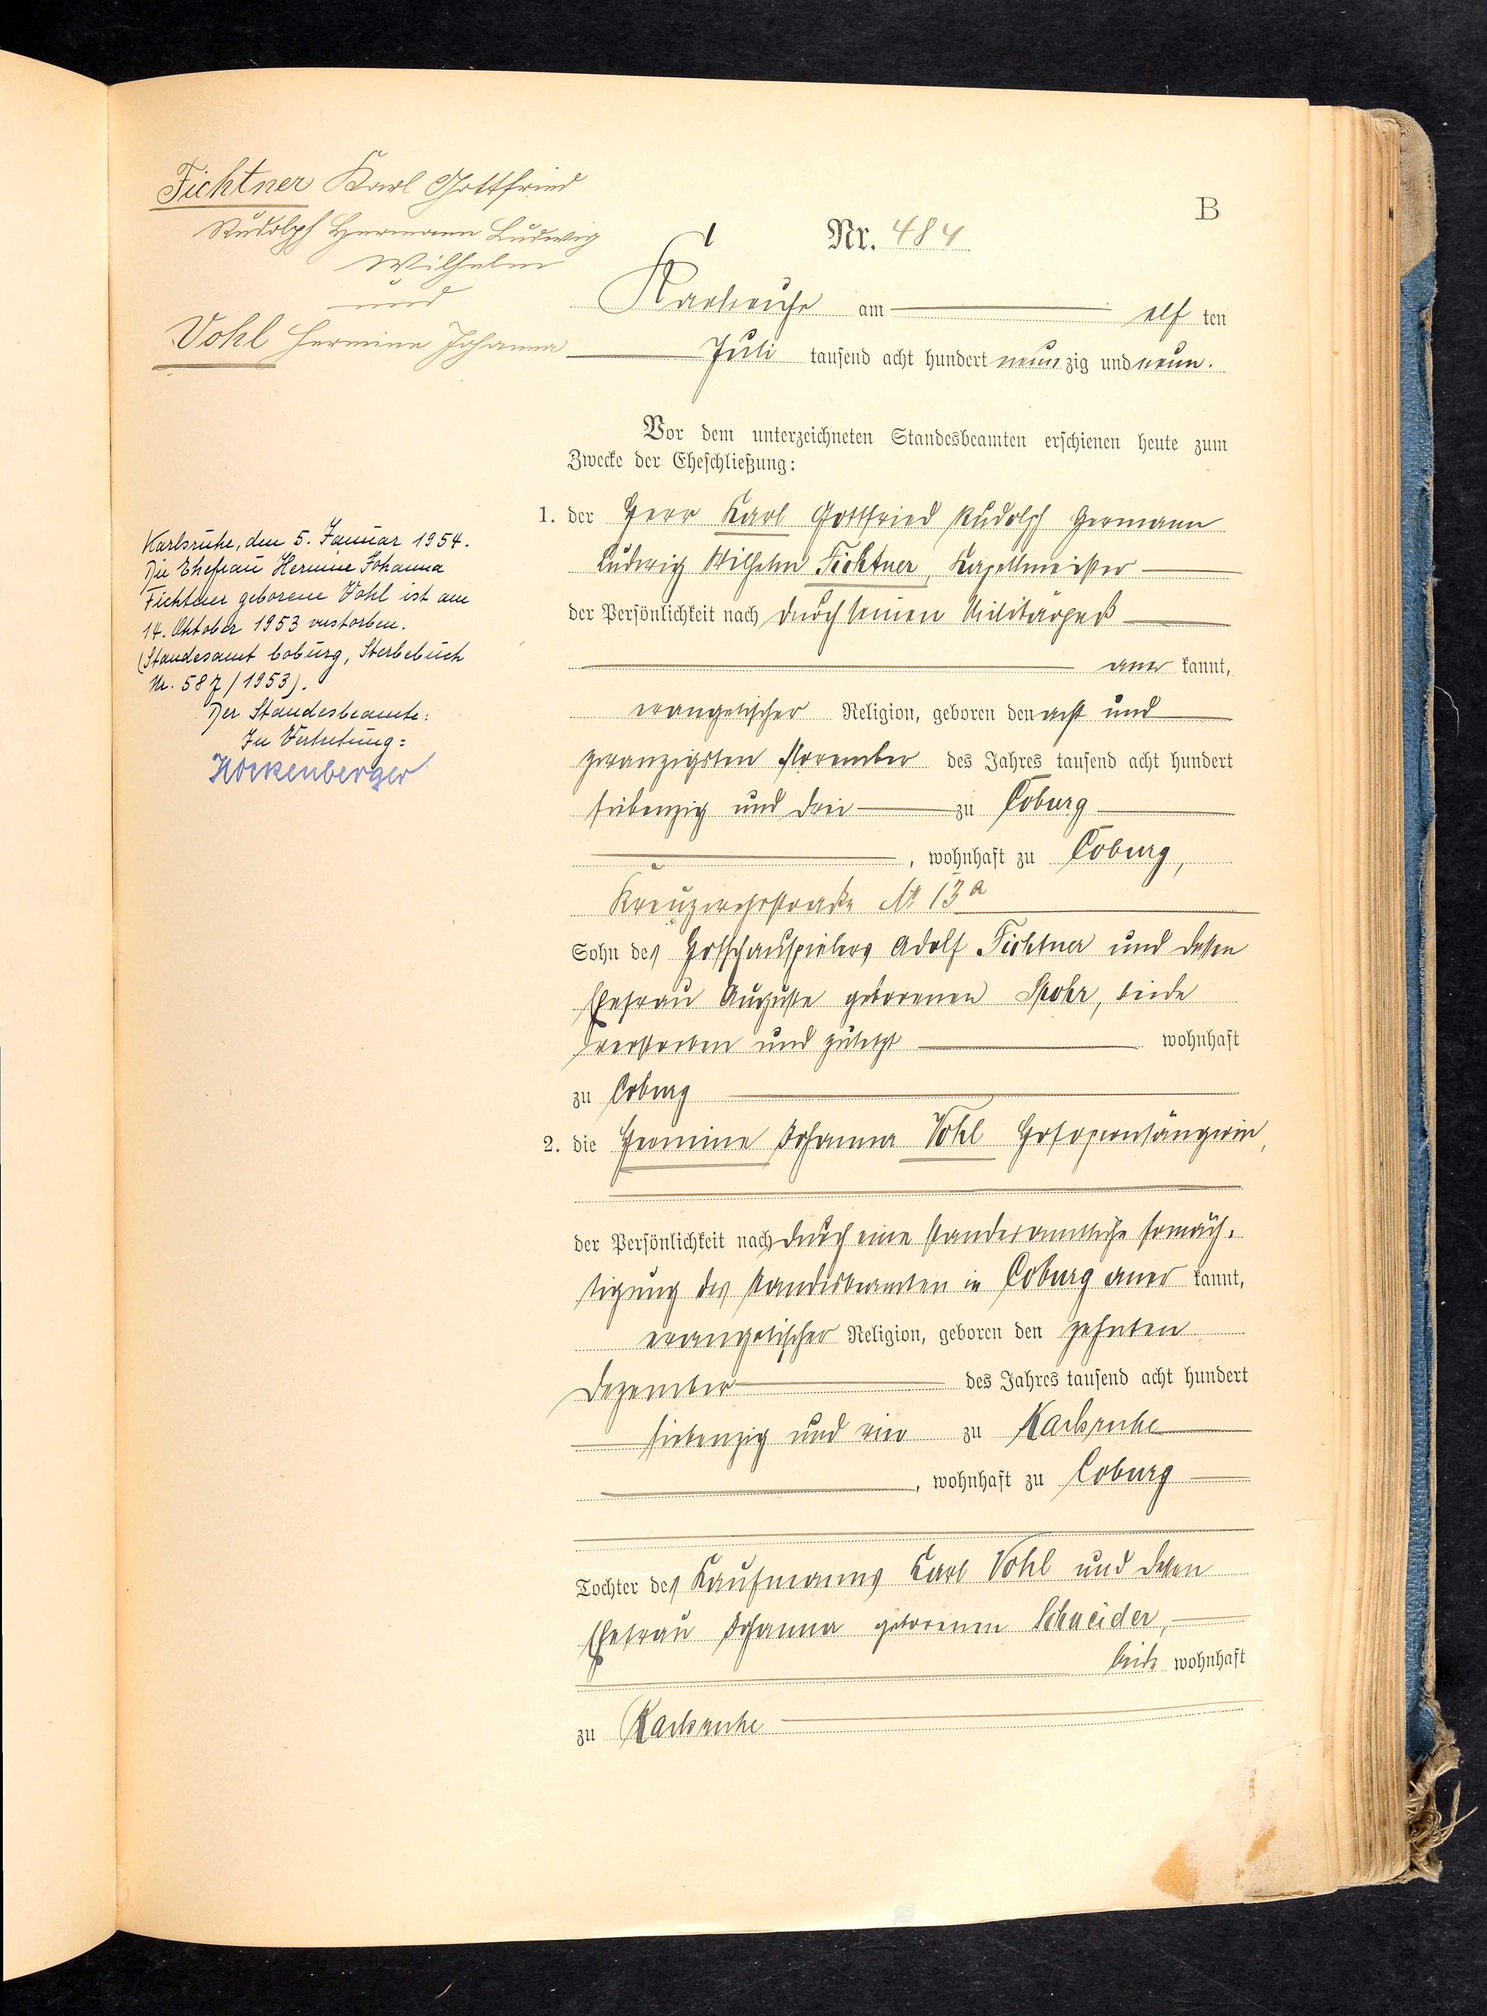 Fichtner Karl Gottfried
Rudolph Hermann Ludwig
Wilhelm
und
Vohl Hermine Johanna
B
Nr. 484
Karlsruhe am elf ten
Juli tausend acht hundert neun zig und neun.
Vor dem unterzeichneten Standesbeamten erschienen heute zum
Zwecke der Eheschließung:
1. der Herr Karl Gottfried Rudolph Hermann
Ludwig Wilhelm Fichtner, Kapellmeister
der Persönlichkeit nach durch seinen Militärpaß
aner kannt,
evangelischer Religion, geboren den acht und
zwanzigsten November des Jahres tausend acht hundert
siebenzig und drei zu Coburg
, wohnhaft zu Coburg,
Kreuzwehrstraße No 13a
Sohn des Hofschauspielers Adolf Fichtner und dessen
Ehefrau Auguste geborenen Spohr, beide
verstorben und zuletzt wohnhaft
zu Coburg
2. die Hermine Johanna Vohl Hofopernsängerin,
der Persönlichkeit nach durch eine standesamtliche Ermäch-
tigung des Standesbeamten in Coburg aner kannt,
evangelischer Religion, geboren den zehnten
Dezember des Jahres tausend acht hundert
siebenzig und vier zu Karlsruhe
, wohnhaft zu Coburg
Tochter des Kaufmanns Karl Vohl und dessen
Ehefrau Johanna geborenen Schneider,
beide wohnhaft
zu Karlsruhe
Karlsruhe, den 5. Januar 1954.
Die Ehefrau Hermine Johanna
Fichtner geborene Vohl ist am
14. Oktober 1953 verstorben.
(Standesamt Coburg, Sterbebuch
Nr. 587/1953).
Der Standesbeamte:
In Vertretung:
Hockenberger